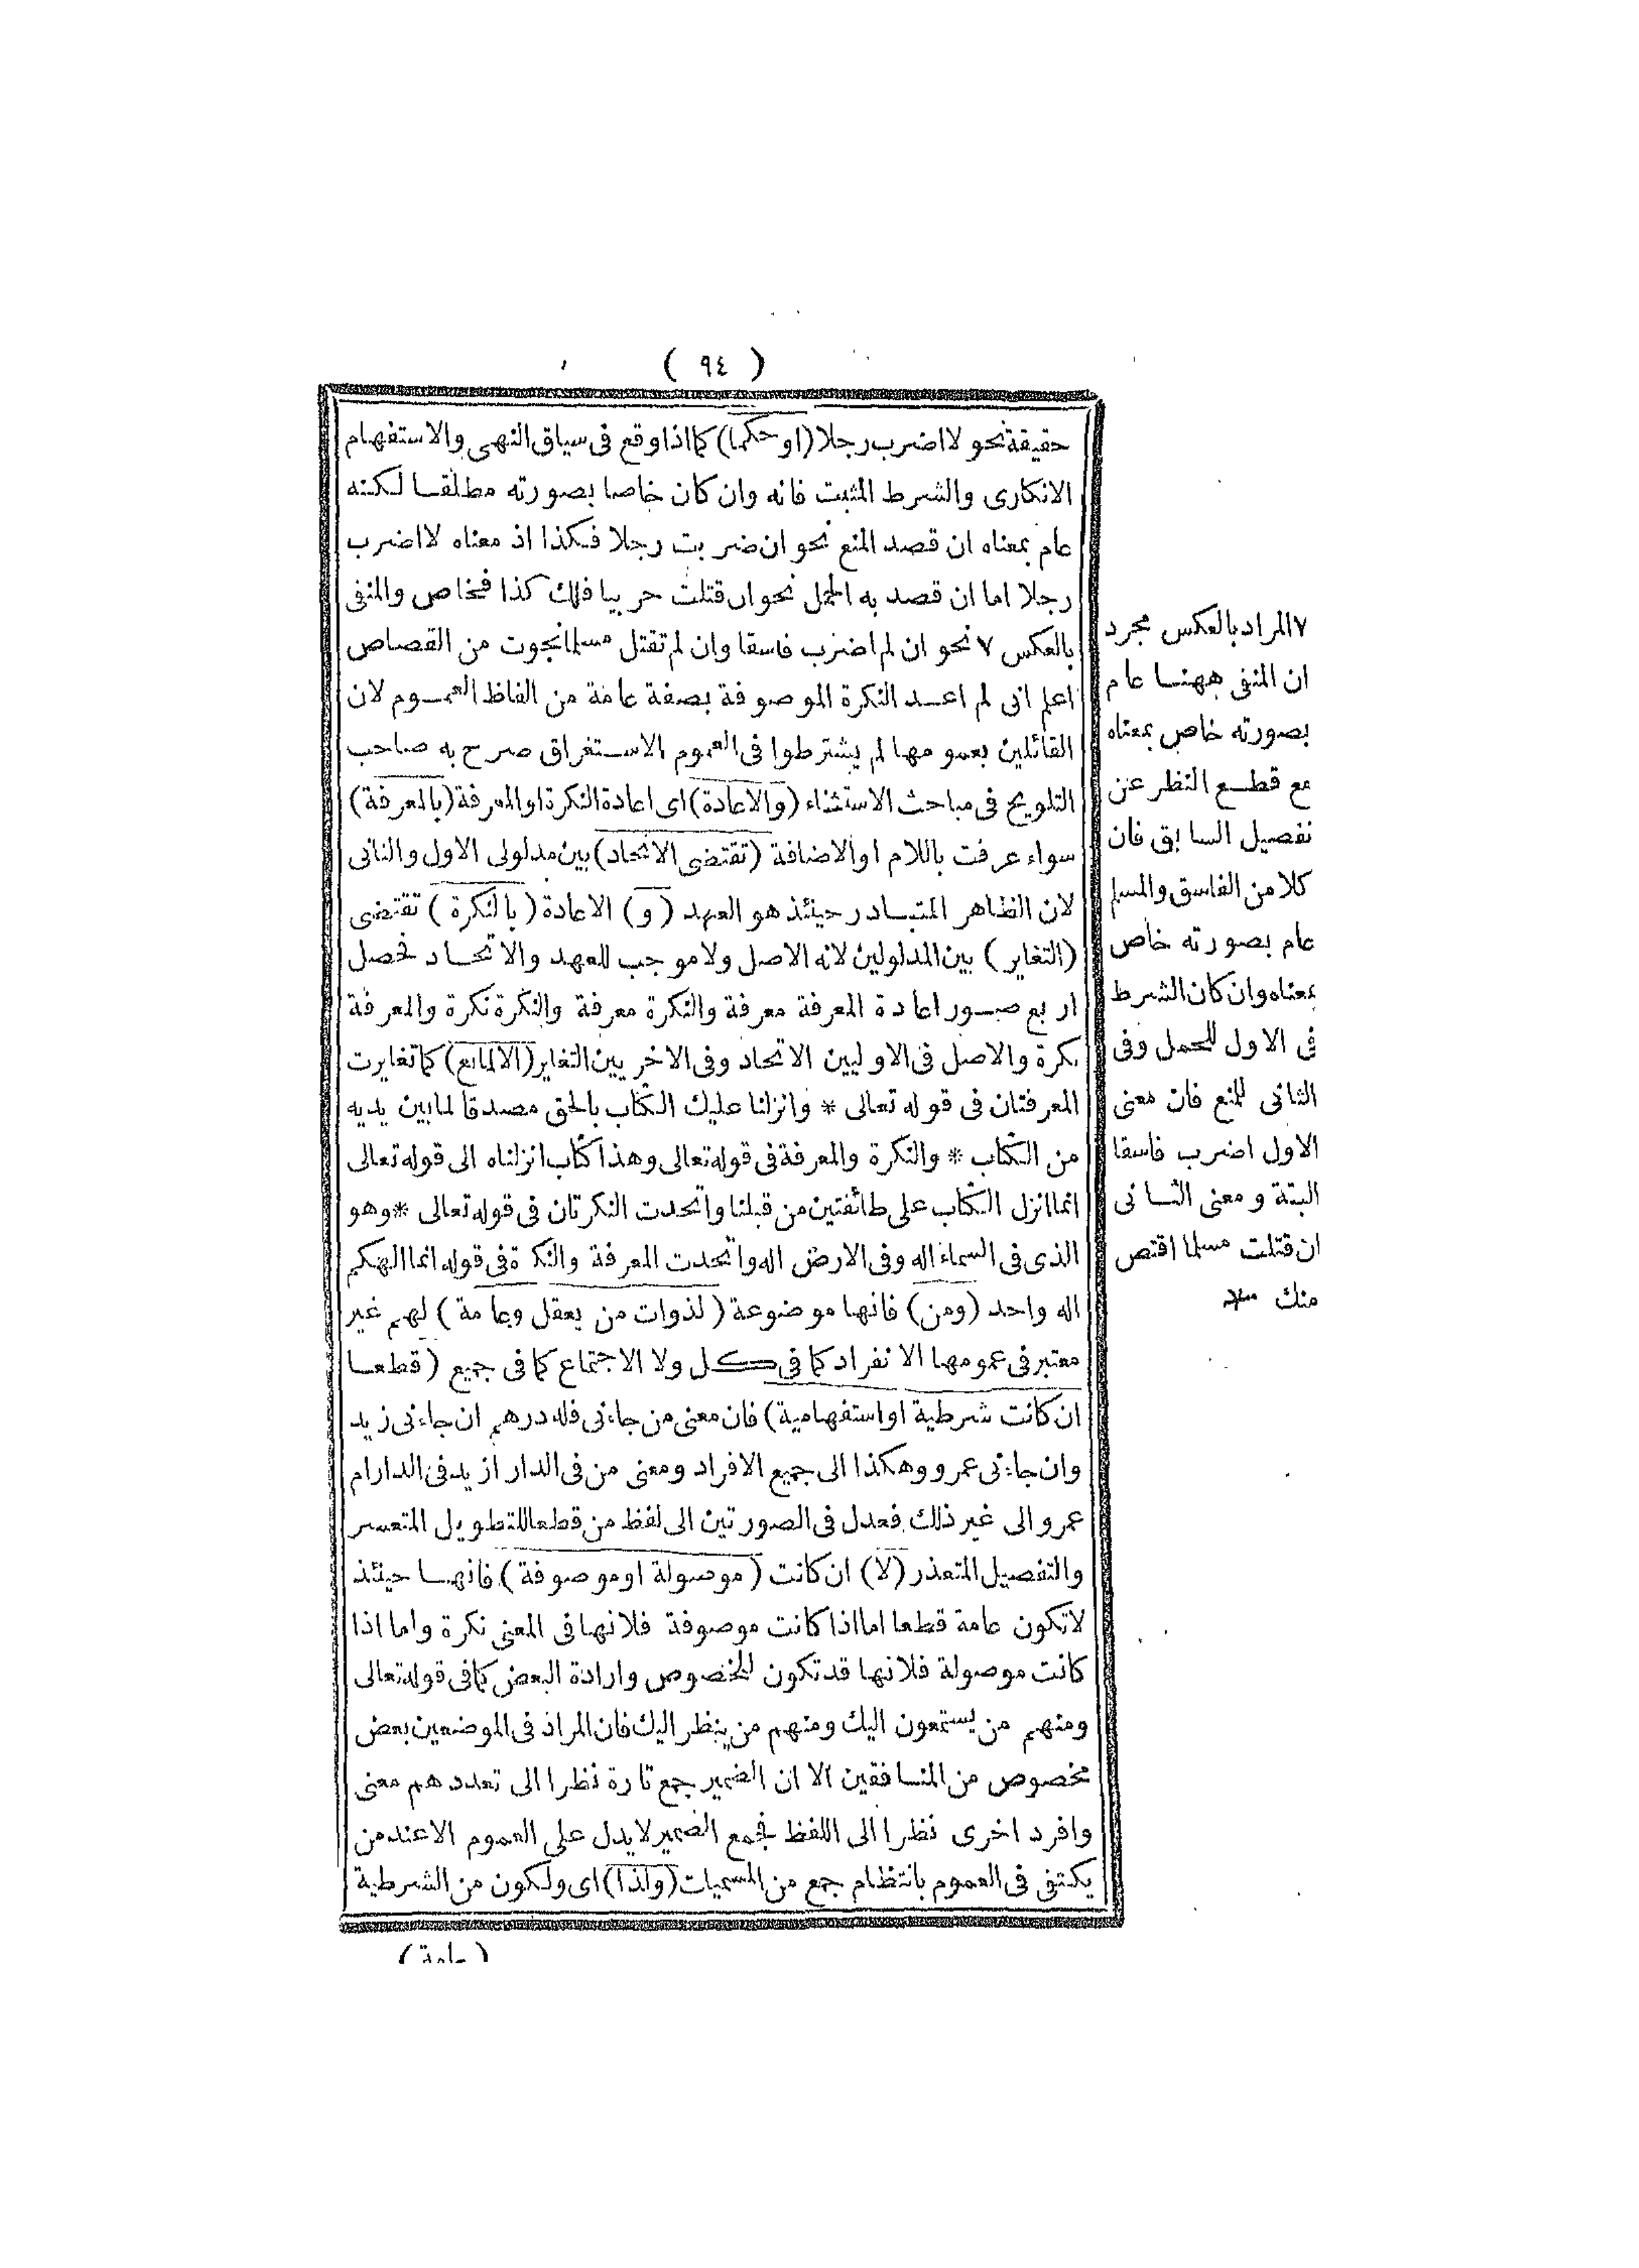 ( ٩٤ )
حقيقة نحو لا اضرب رجلا (او حكما) كما اذا وقع فى سياق النهى والاستفهام
الانكارى والشرط المثبت فانه وان كان خاصا بصورته مطلقا لكنه
عام بمعناه ان قصد المنع نحو ان ضربت رجلا فكذا اذ معناه لا اضرب
رجلا اما ان قصد به الحمل نحو ان قتلت حربيا فلك كذا فخاص والمنفى
بالعكس ٧ نحو ان لم اضرب فاسقا وان لم تقتل مسلما نجوت من القصاص
اعلم انى لم اعد النكرة الموصوفة بصفة عامة من الفاظ العموم لان
القائلين بعمومها لم يشترطوا فى العموم الاستغراق صرح به صاحب
التلويح فى مباحث الاستثناء (والاعادة) اى اعادة النكرة او المعرفة (بالمعرفة)
سواء عرفت باللام او الاضافة (تقتضى الاتحاد) بين مدلولى الاول والثانى
لان الظاهر المتبادر حينئذ هو العهد (و) الاعادة (بالنكرة) تقتضى
(التغاير) بين المدلولين لانه الاصل ولا موجب للعهد والاتحاد فحصل
اربع صور اعادة المعرفة معرفة والنكرة معرفة والنكرة نكرة والمعرفة
نكرة والاصل فى الاوليين الاتحاد وفى الاخريين التغاير (الا لمانع) كما تغايرت
المعرفتان فى قوله تعالى * وانزلنا عليك الكتاب بالحق مصدقا لما بين يديه
من الكتاب * والنكرة والمعرفة فى قوله تعالى وهذا كتاب انزلناه الى قوله تعالى
انما انزل الكتاب على طائفتين من قبلنا واتحدت النكرتان فى قوله تعالى * وهو
الذى فى السماء اله وفى الارض اله واتحدت المعرفة والنكرة فى قوله انما الهكم
اله واحد (ومن) فانها موضوعة (لذوات من يعقل وعامة) لهم غير
معتبر فى عمومها الانفراد كما فى كل ولا الاجتماع كما فى جميع (قطعا
ان كانت شرطية او استفهامية) فان معنى من جاءنى فله درهم ان جاءنى زيد
وان جاءنى عمرو وهكذا الى جميع الافراد ومعنى من فى الدار ازيد فى الدار ام
عمرو الى غير ذلك فعدل فى الصورتين الى لفظ من قطعا للتطويل المتعسر
والتفصيل المتعذر (لا) ان كانت (موصولة او موصوفة) فانها حينئذ
لا تكون عامة قطعا اما اذا كانت موصوفة فلانها فى المعنى نكرة واما اذا
كانت موصولة فلانها قد تكون للخصوص وارادة البعض كما فى قوله تعالى
ومنهم من يستمعون اليك ومنهم من ينظر اليك فان المراد فى الموضعين بعض
مخصوص من المنافقين الا ان الضمير جمع تارة نظرا الى تعددهم معنى
وافرد اخرى نظرا الى اللفظ فجمع الضمير لا يدل على العموم الا عند من
يكتفى فى العموم بانتظام جمع من المسميات (ولذا) اى ولكون من الشرطية
(عامة)
٧ المراد بالعكس مجرد
ان المنفى ههنا عام
بصورته خاص بمعناه
مع قطع النظر عن
تفصيل السابق فان
كلا من الفاسق والمسلم
عام بصورته خاص
بمعناه وان كان الشرط
فى الاول للحمل وفى
الثانى للمنع فان معنى
الاول اضرب فاسقا
البتة ومعنى الثانى
ان قتلت مسلما اقتص
منك